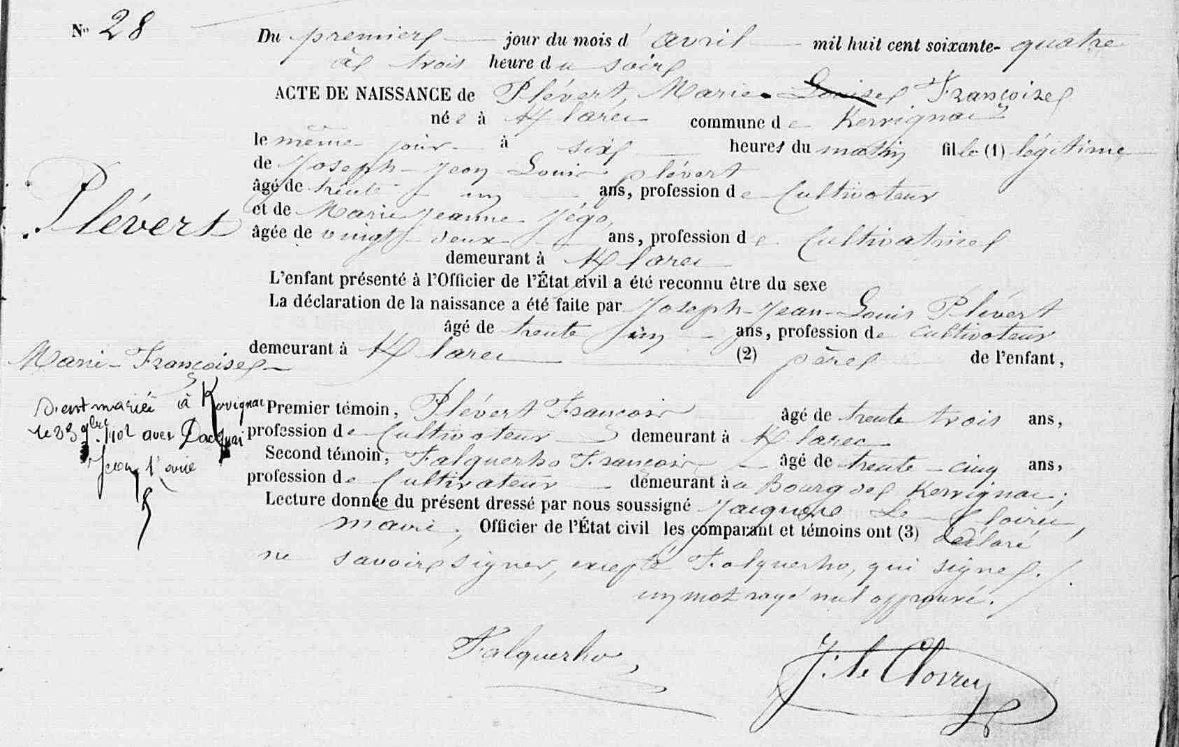 No 28
Du premier jour du mois d'avril mil huit cent soixante-quatre
à trois heure du soir
ACTE DE NAISSANCE de Plévert, Marie Louise Françoise
née à Klarec commune de Kervignac
le même jour à six heures du matin fille (1) légitime
de Joseph-Jean Louis Plévert
âgé de trente ans, profession de Cultivateur
et de Marie Jeanne Jégo,
Plévert
âgée de vingt deux ans, profession de Cultivatrice
demeurant à Klarec
L'enfant présenté à l'Officier de l'État civil a été reconnu être du sexe
La déclaration de la naissance a été faite par Joseph-Jean-Louis Plévert
âgé de trente ans, profession de Cultivateur
demeurant à Klarec (2) père de l'enfant,
Marie-Françoise
s'est mariée à Kervignac
le 23 9bre 1902 avec
Jean
Premier témoin, Plévert François âgé de trente trois ans,
profession de Cultivateur demeurant à Klarec
Second témoin, Falquerho François âgé de trente-cinq ans,
profession de Cultivateur demeurant au Bourg de Kervignac;
Lecture donnée du présent dressé par nous soussigné Jacques Le
maire, Officier de l'État civil les comparant et témoins ont (3) déclaré
ne savoir signer, excepté Falquerho, qui signe./.
un mot rayé nul approuvé./
Falquerho
J. le